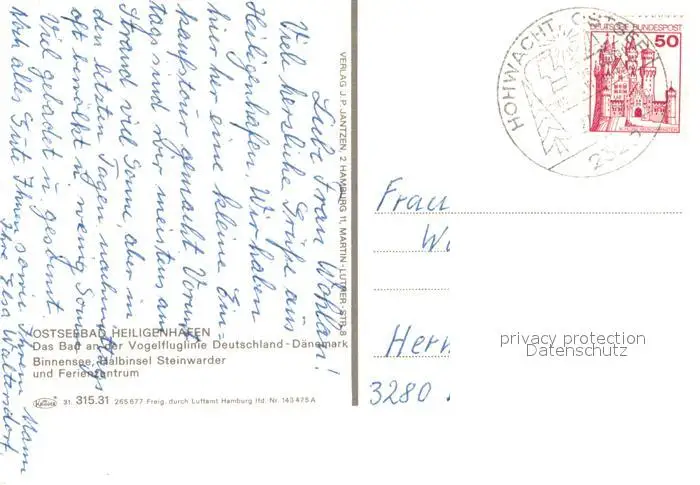 Liebe Frau Wohlan!
Viele herzliche Grüße aus
Heiligenhafen. Wir haben
hier her eine kleine Ein-
kaufstour gemacht. Vormit-
tags sind wir meistens am
Strand viel Sonne, aber in
den letzten Tagen nachmittags
oft bewölkt u. wenig Sonne.
Viel gebadet u.
Noch alles Gute Ihnen sowie Ihrem Mann
Ihre Elsa
VERLAG J. P. JANTZEN, 2 HAMBURG 11, MARTIN-LUTHER-STR. 8
OSTSEEBAD HEILIGENHAFEN
Das Bad an der Vogelfluglinie Deutschland - Dänemark
Binnensee, Halbinsel Steinwarder
und Ferienzentrum
31. 315.31 265677 Freig. durch Luftamt Hamburg lfd. Nr. 143475A
HOHWACHT, OSTSEE
DEUTSCHE BUNDESPOST
50
SCHLOSS NEUSCHWANSTEIN
Frau
W
Her
3280
privacy protection
Datenschutz